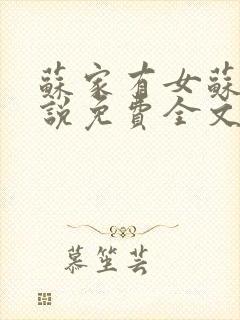 蘇家有女蘇
說免費全文
慕笙芸